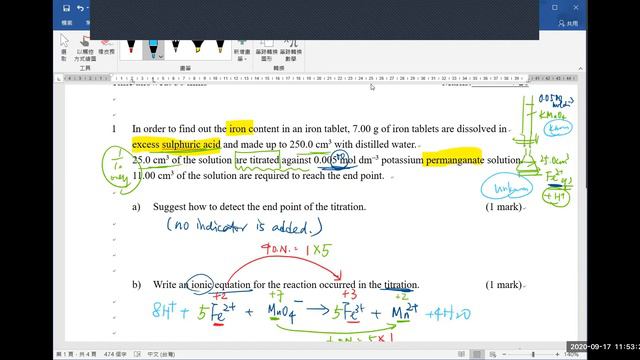 共用
選取
套索
筆畫
轉換
0.0050
mol dm⁻³
KMnO₄
known
25.0cm³
Fe²⁺(aq)
+ H⁺
unknown
1 In order to find out the iron content in an iron tablet, 7.00 g of iron tablets are dissolved in
excess sulphuric acid and made up to 250.0 cm³ with distilled water.
25.0 cm³ of the solution are titrated against 0.005 mol dm⁻³ potassium permanganate solution.
11.00 cm³ of the solution are required to reach the end point.
a) Suggest how to detect the end point of the titration. (1 mark)
(no indicator is added.)
↑O.N. = 1 × 5
b) Write an ionic equation for the reaction occurred in the titration. (1 mark)
+2 +7 +3 +2
8H⁺ + 5Fe²⁺ + MnO₄⁻ → 5Fe³⁺ + Mn²⁺ + 4H₂O
第 1 頁，共 4 頁 474 個字 中文 (台灣) 140%
2020-09-17 11:53:2